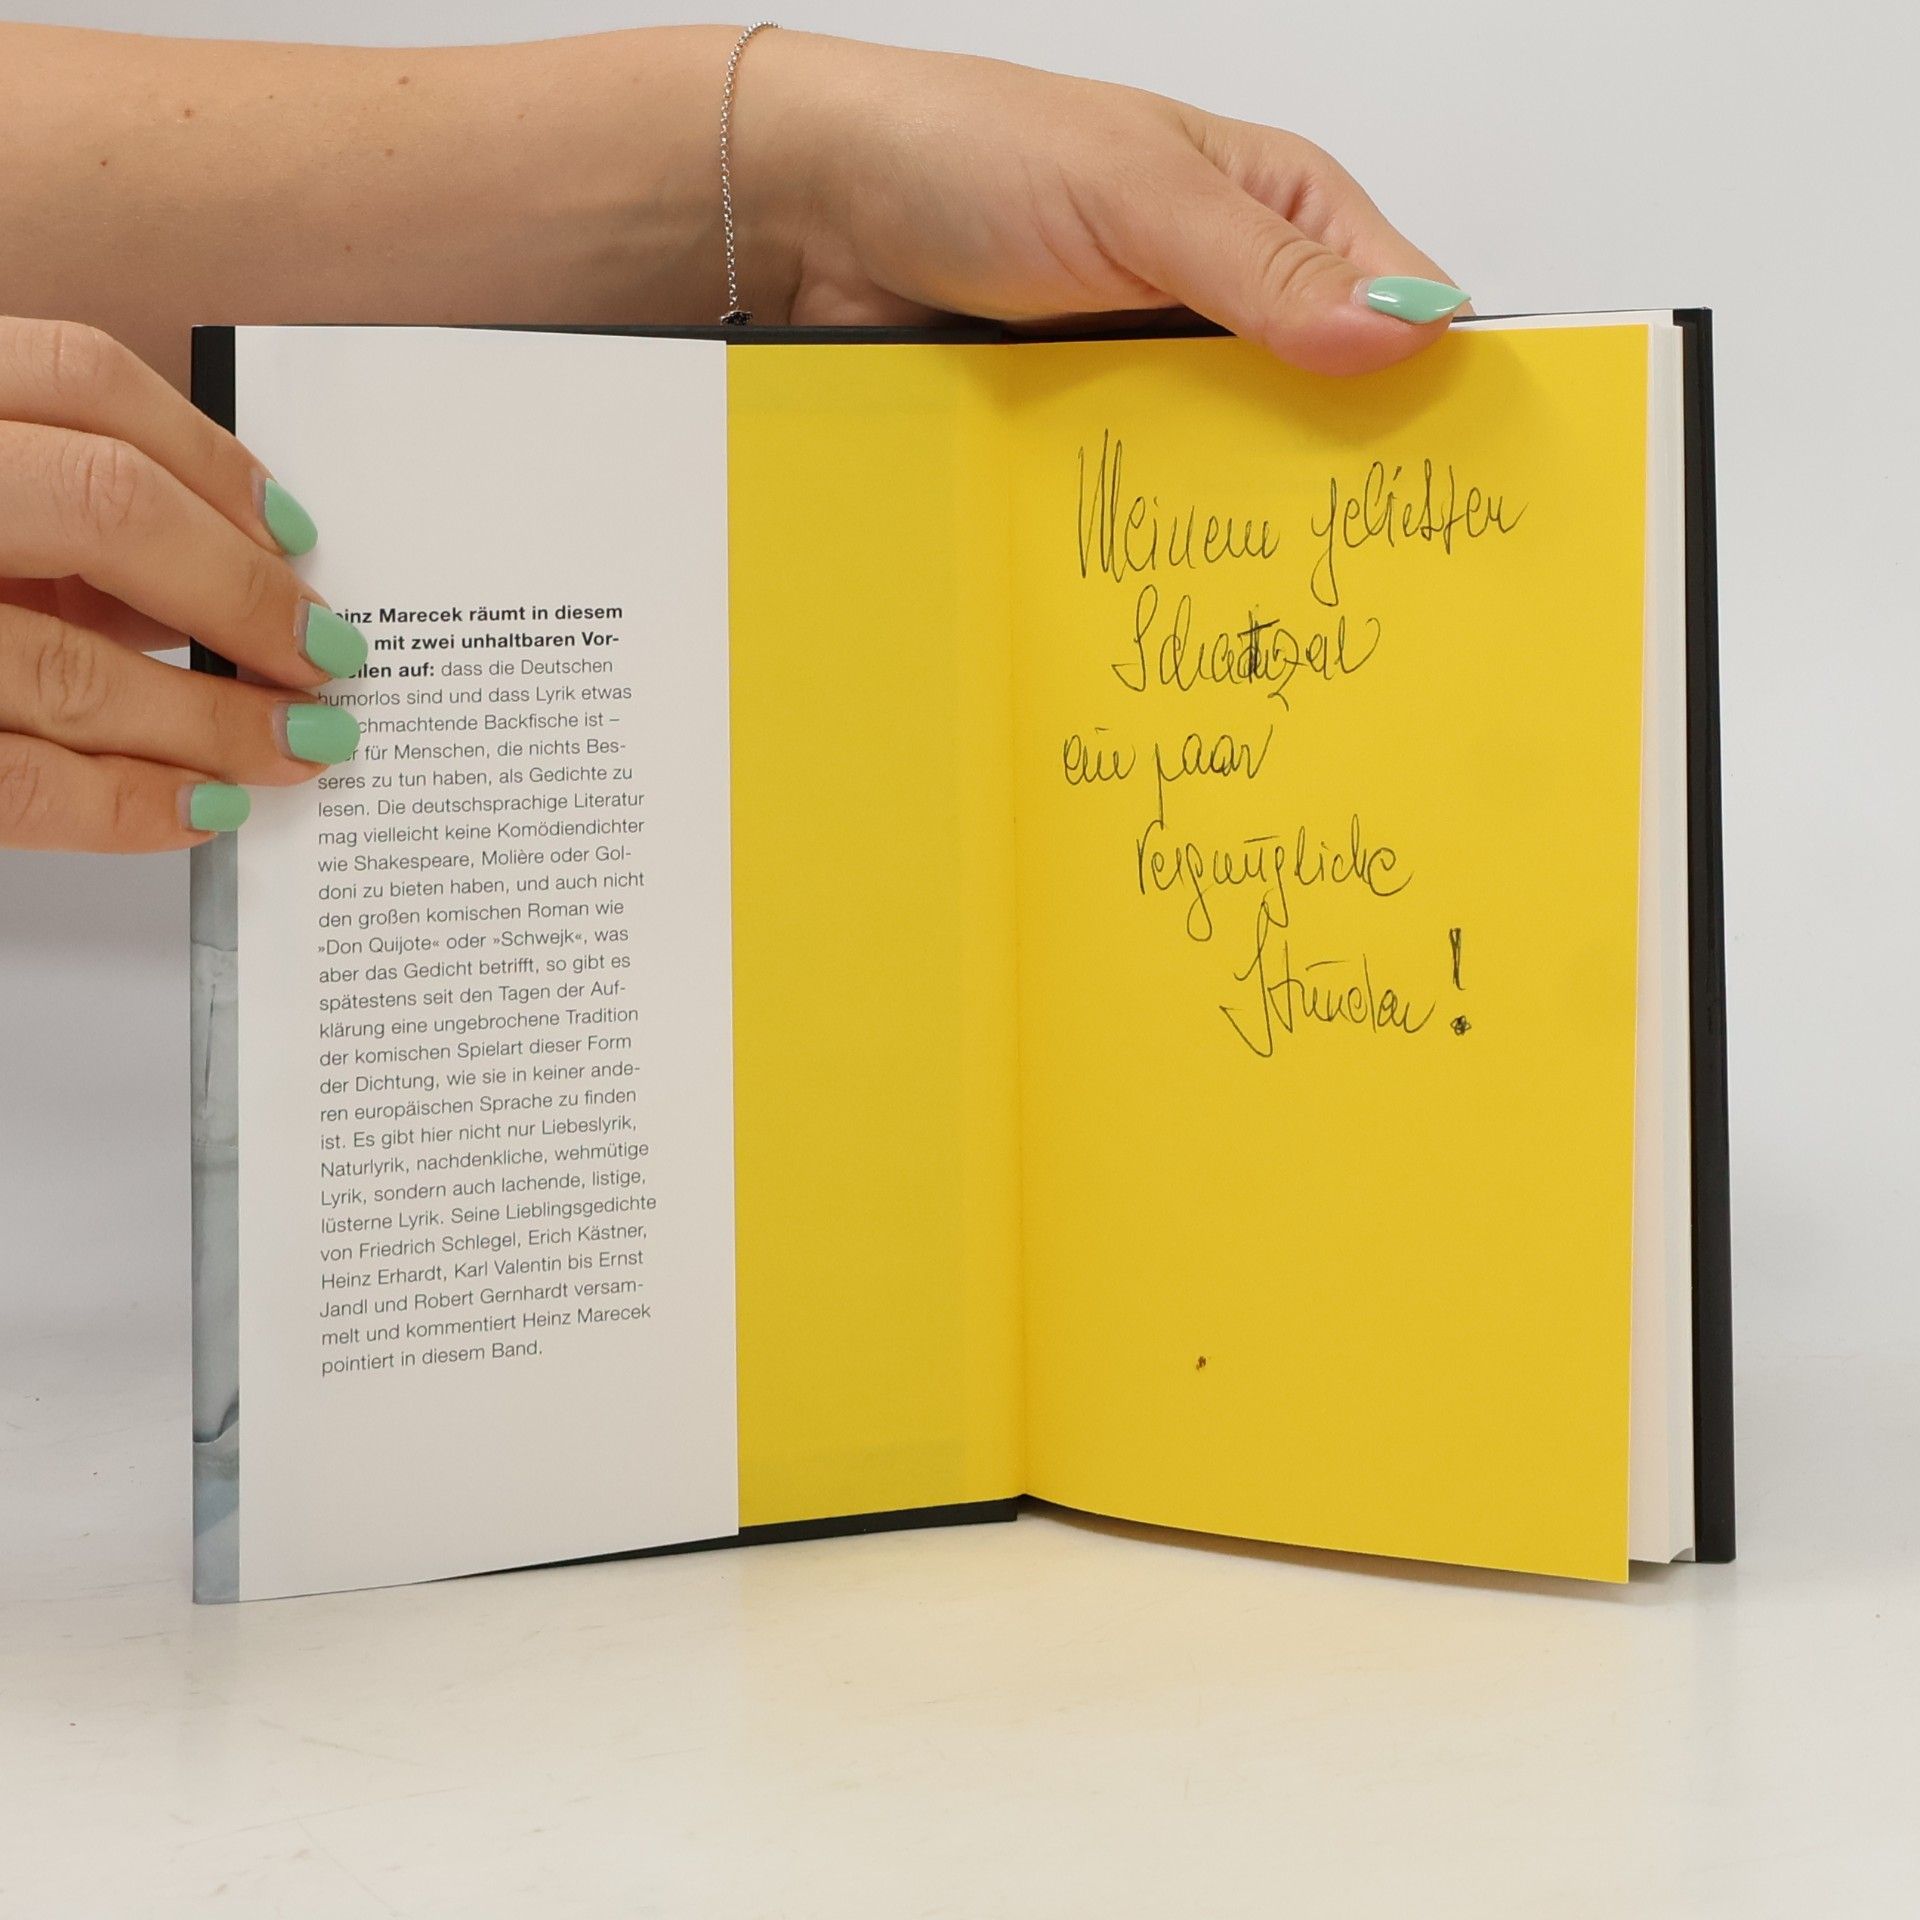 einz Marecek räumt in diesem
mit zwei unhaltbaren Vor-
len auf: dass die Deutschen
humorlos sind und dass Lyrik etwas
chmachtende Backfische ist –
r für Menschen, die nichts Bes-
seres zu tun haben, als Gedichte zu
lesen. Die deutschsprachige Literatur
mag vielleicht keine Komödiendichter
wie Shakespeare, Molière oder Gol-
doni zu bieten haben, und auch nicht
den großen komischen Roman wie
»Don Quijote« oder »Schwejk«, was
aber das Gedicht betrifft, so gibt es
spätestens seit den Tagen der Auf-
klärung eine ungebrochene Tradition
der komischen Spielart dieser Form
der Dichtung, wie sie in keiner ande-
ren europäischen Sprache zu finden
ist. Es gibt hier nicht nur Liebeslyrik,
Naturlyrik, nachdenkliche, wehmütige
Lyrik, sondern auch lachende, listige,
lüsterne Lyrik. Seine Lieblingsgedichte
von Friedrich Schlegel, Erich Kästner,
Heinz Erhardt, Karl Valentin bis Ernst
Jandl und Robert Gernhardt versam-
melt und kommentiert Heinz Marecek
pointiert in diesem Band.
Meinem geliebten
ein paar
vergnügliche
Stunden!